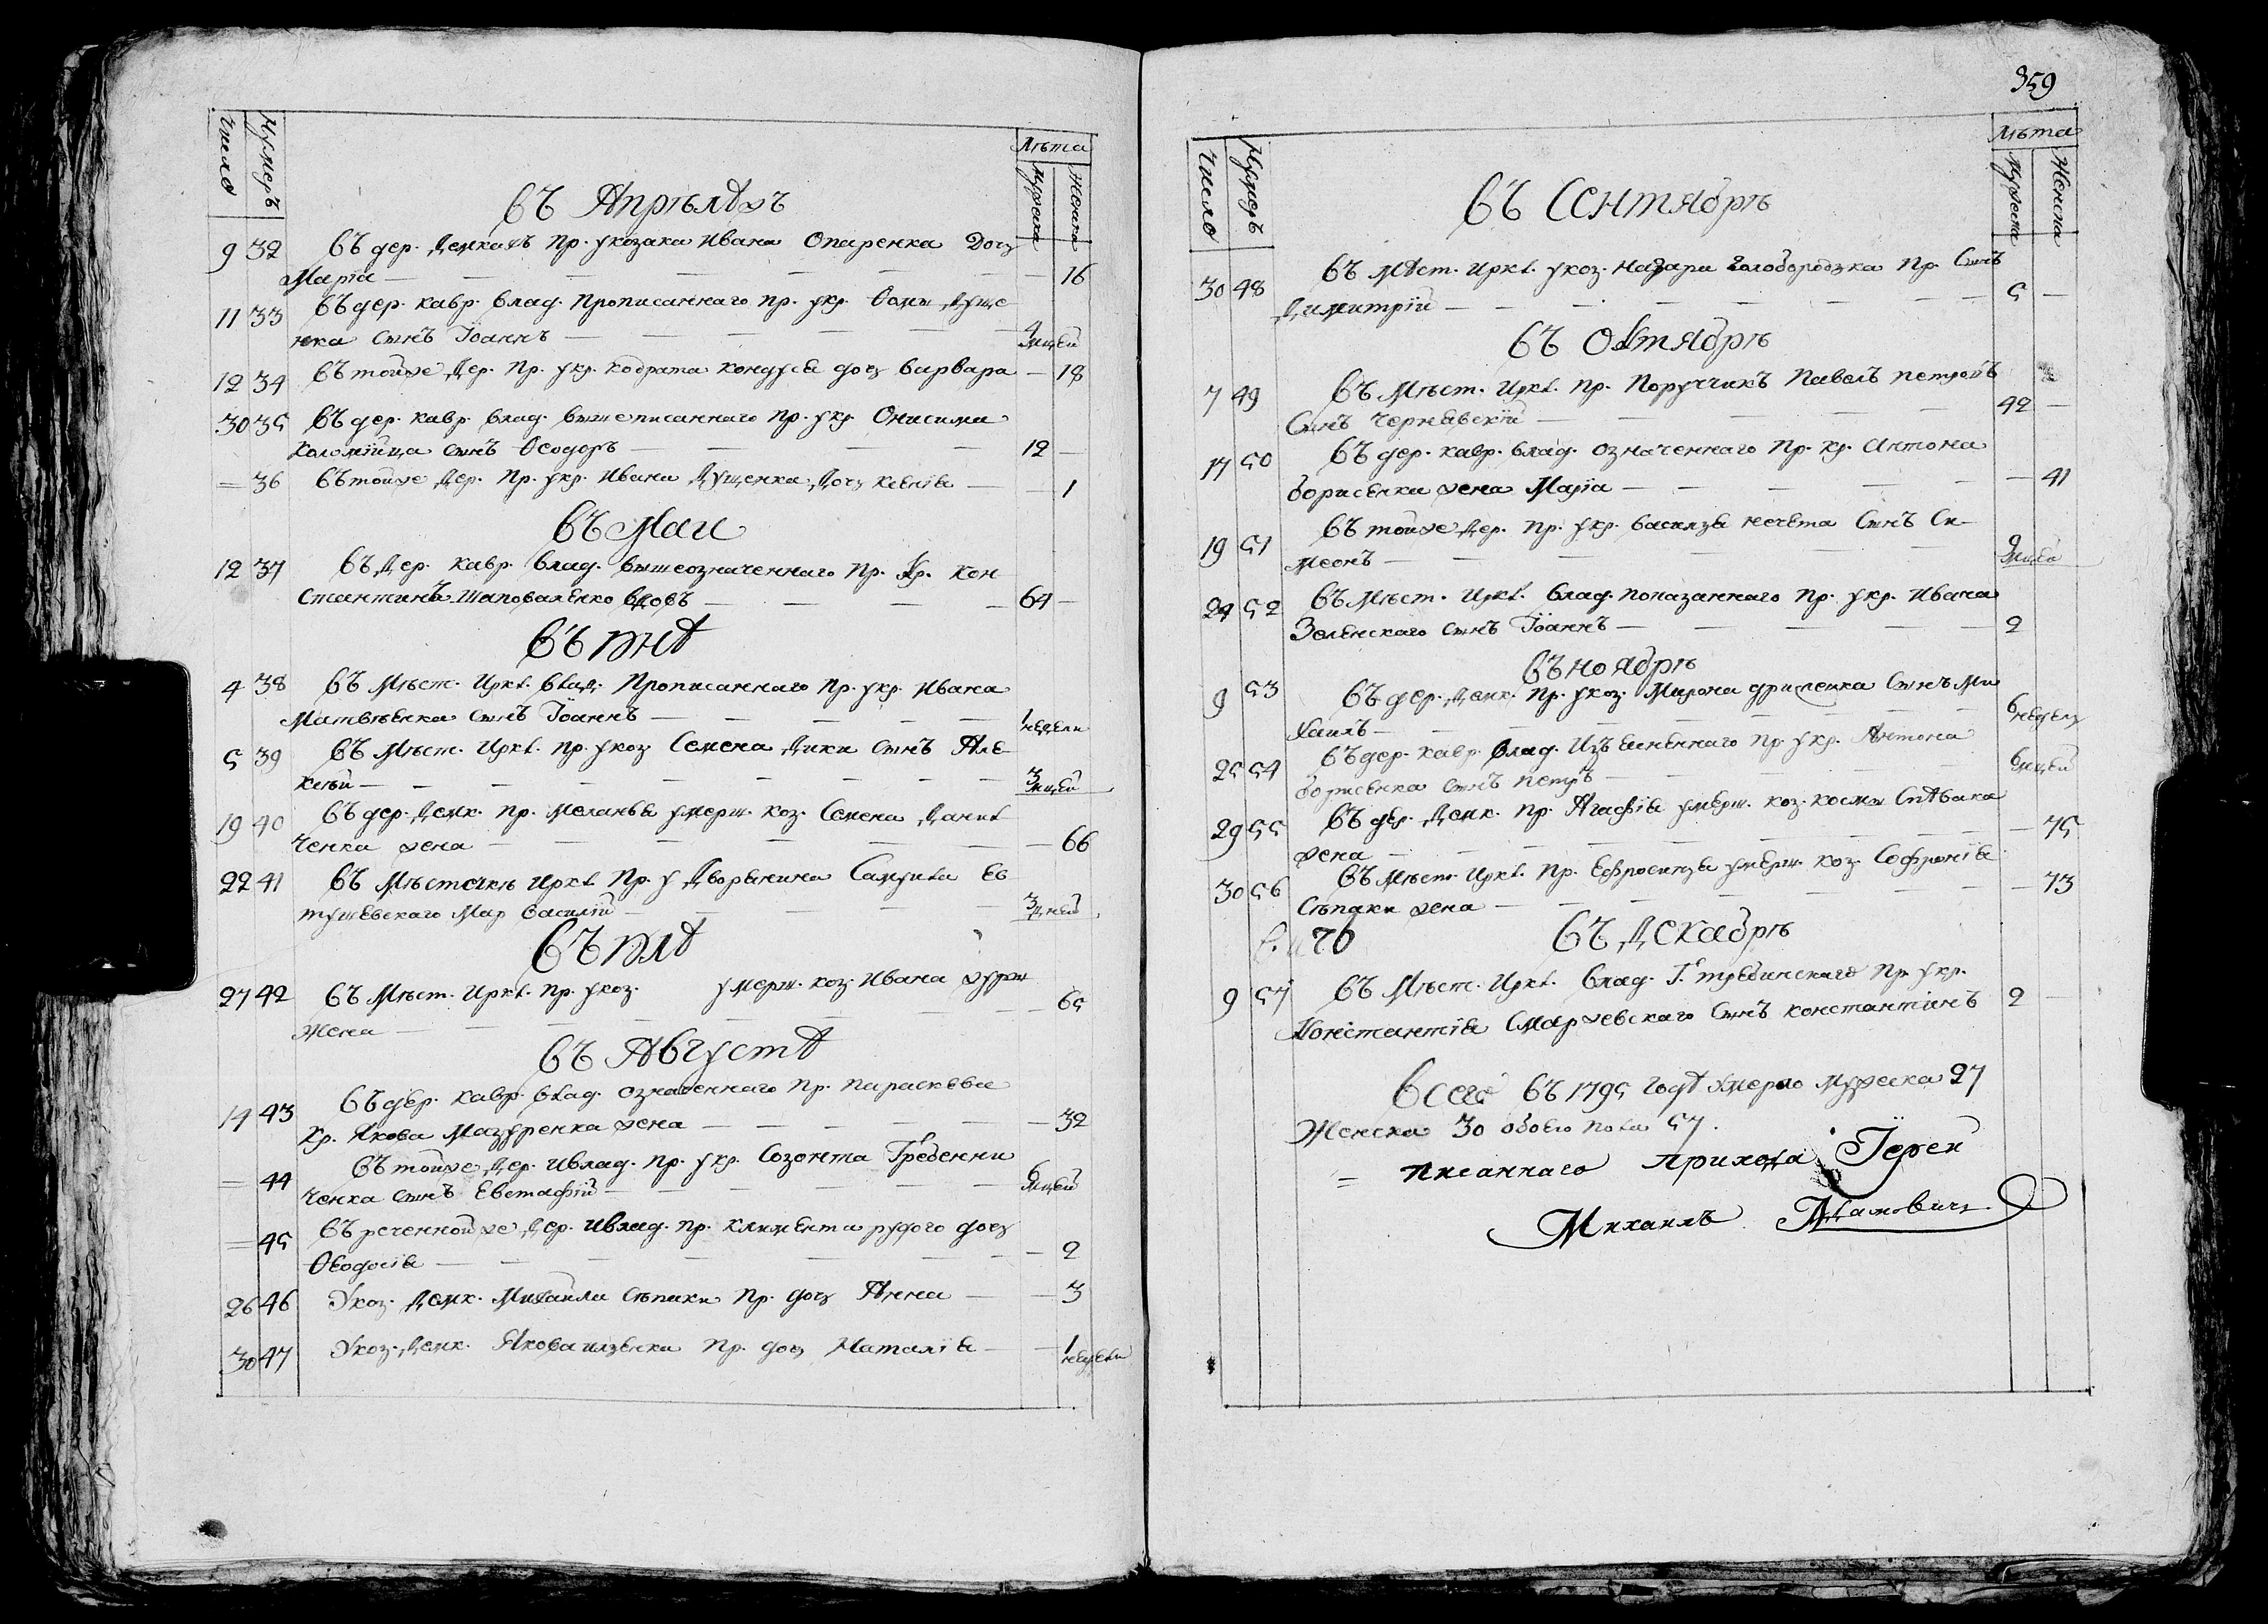 Число Нумеръ Лѣта Мужеска Женска
въ Апрѣлѣ
9 32 Въ дер. Демкахъ пр. у козака Ивана Опаренка Дочь
Марїа — — 16
11 33 Въ дер. Кавр. влад. Прописаннаго пр. укр. Ѳомы Дуще
нка сынъ Їоаннъ — 4 мцей
12 34 Въ тойже Дер. пр. укр. Кодрата дочь варвара — 18
30 35 Въ дер. кавр. влад. вышеписаннаго пр. укр. Онисима
Коломїйца сынъ Ѳеодоръ — 12 —
= 36 Въ тойже Дер. пр. укр. Ивана Дущенка Дочь Ксенїа — 1
въ Маи
12 37 Въ Дер. кавр. влад. вышеозначеннаго пр. Кр. Кон
стантинъ Шаповаленко вдовъ — 64 —
4 38 Въ Мѣст. Иркл. влад. Прописаннаго пр. укр. Ивана
Матвѣенка сынъ Їоаннъ — 1 недели
5 39 Въ Мѣст. Иркл. пр. укоз Семена Дики сынъ Але
ксѣй — 3 мцей
19 40 Въ дер. Демк. пр. Меланья умерш. коз. Семена Данил
ченка жена — — 66
22 41 Въ Мѣстечкѣ Иркл. пр. у Дворянина Самуила Ев
тушевскаго Мар Василїй — 3 дней
27 42 Въ Мѣст. Иркл. пр. укоз. умерш. коз. Ивана
Жена — — 65
въ Августѣ
14 43 Въ дер. кавр. влад. означеннаго пр. параскева
Кр. Якова Мазуренка жена — — 32
= 44 Въ тойже Дер. ивлад. пр. укр. Созонта Гребенни
ченка сынъ Евстафїй — 6 мцей
= 45 Въ реченной же Дер. ивлад. пр. Климента рудого дочь
Ѳеодосїа — — 2
26 46 Укоз. Демк. Михайли Слѣпики пр. дочь Анна — — 3
30 47 Укоз. Демк. Якова пр. дочь Наталїа — — 1 недели
359
Число Нумеръ Лѣта Мужеска Женска
въ Сентябрѣ
30 48 Въ Мѣст. Иркл. укоз. Назара Голобородка пр. Сынъ
Димитрїй — 5 —
въ Октябрѣ
7 49 Въ Мѣст. Иркл. пр. Поручикъ Павелъ петровъ
Сынъ Чернявскїй — 42 —
17 50 Въ дер. кавр. влад. означеннаго пр. кр. Антона
борисенка жена Марїа — — 41
19 51 Въ тойже Дер. пр. укр. василья нечета Сынъ Си
меонъ — 9 мцей
24 52 Въ Мѣст. Иркл. влад. показаннаго пр. укр. Ивана
Зеленскаго сынъ Їоаннъ — 2
въ ноябрѣ
9 53 Въ дер. Демк. пр. укоз. Мирона сынъ Ми
хаилъ — 6 недель
25 54 Въ дер. кавр. влад. Изъясненнаго пр. укр. Антона
борисенка сынъ петръ — 6 мцей
29 55 Въ дер. Демк. пр. Агафїа умерш. коз. космы
жена — — 75
30 56 Въ Мѣст. Иркл. пр. Ефросинья умерш. коз. Софронїа
Слѣпаки жена — — 73
въ Декабрѣ
9 57 Въ Мѣст. Иркл. влад. Г. пр. укр.
Константїа Смаржевскаго Сынъ константинъ 2 —
Всего въ 1795 годѣ умерло мужеска 27
Женска 30 обоего пола 57.
= писаннаго прихода Їерей
Михаилъ Адамовичъ